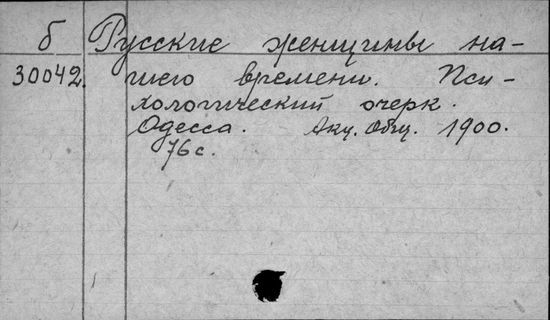 б Русские женщины на-
30042. шего времени. Пси-
хологический очерк.
Одесса. Акц. Общ. 1900.
76 с.